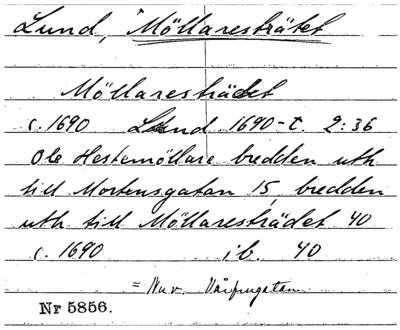 Lund, "Möllareströtet
Möllaresträdet
c. 1690 Lund 1690-t. 2:36
Ole Hestemöllare bredden uth
till Mortensgatan 15, bredden
uth till Möllaresträdet 40
c. 1690 ib. 40
= Nuv. Vårfrugatan
Nr 5856.